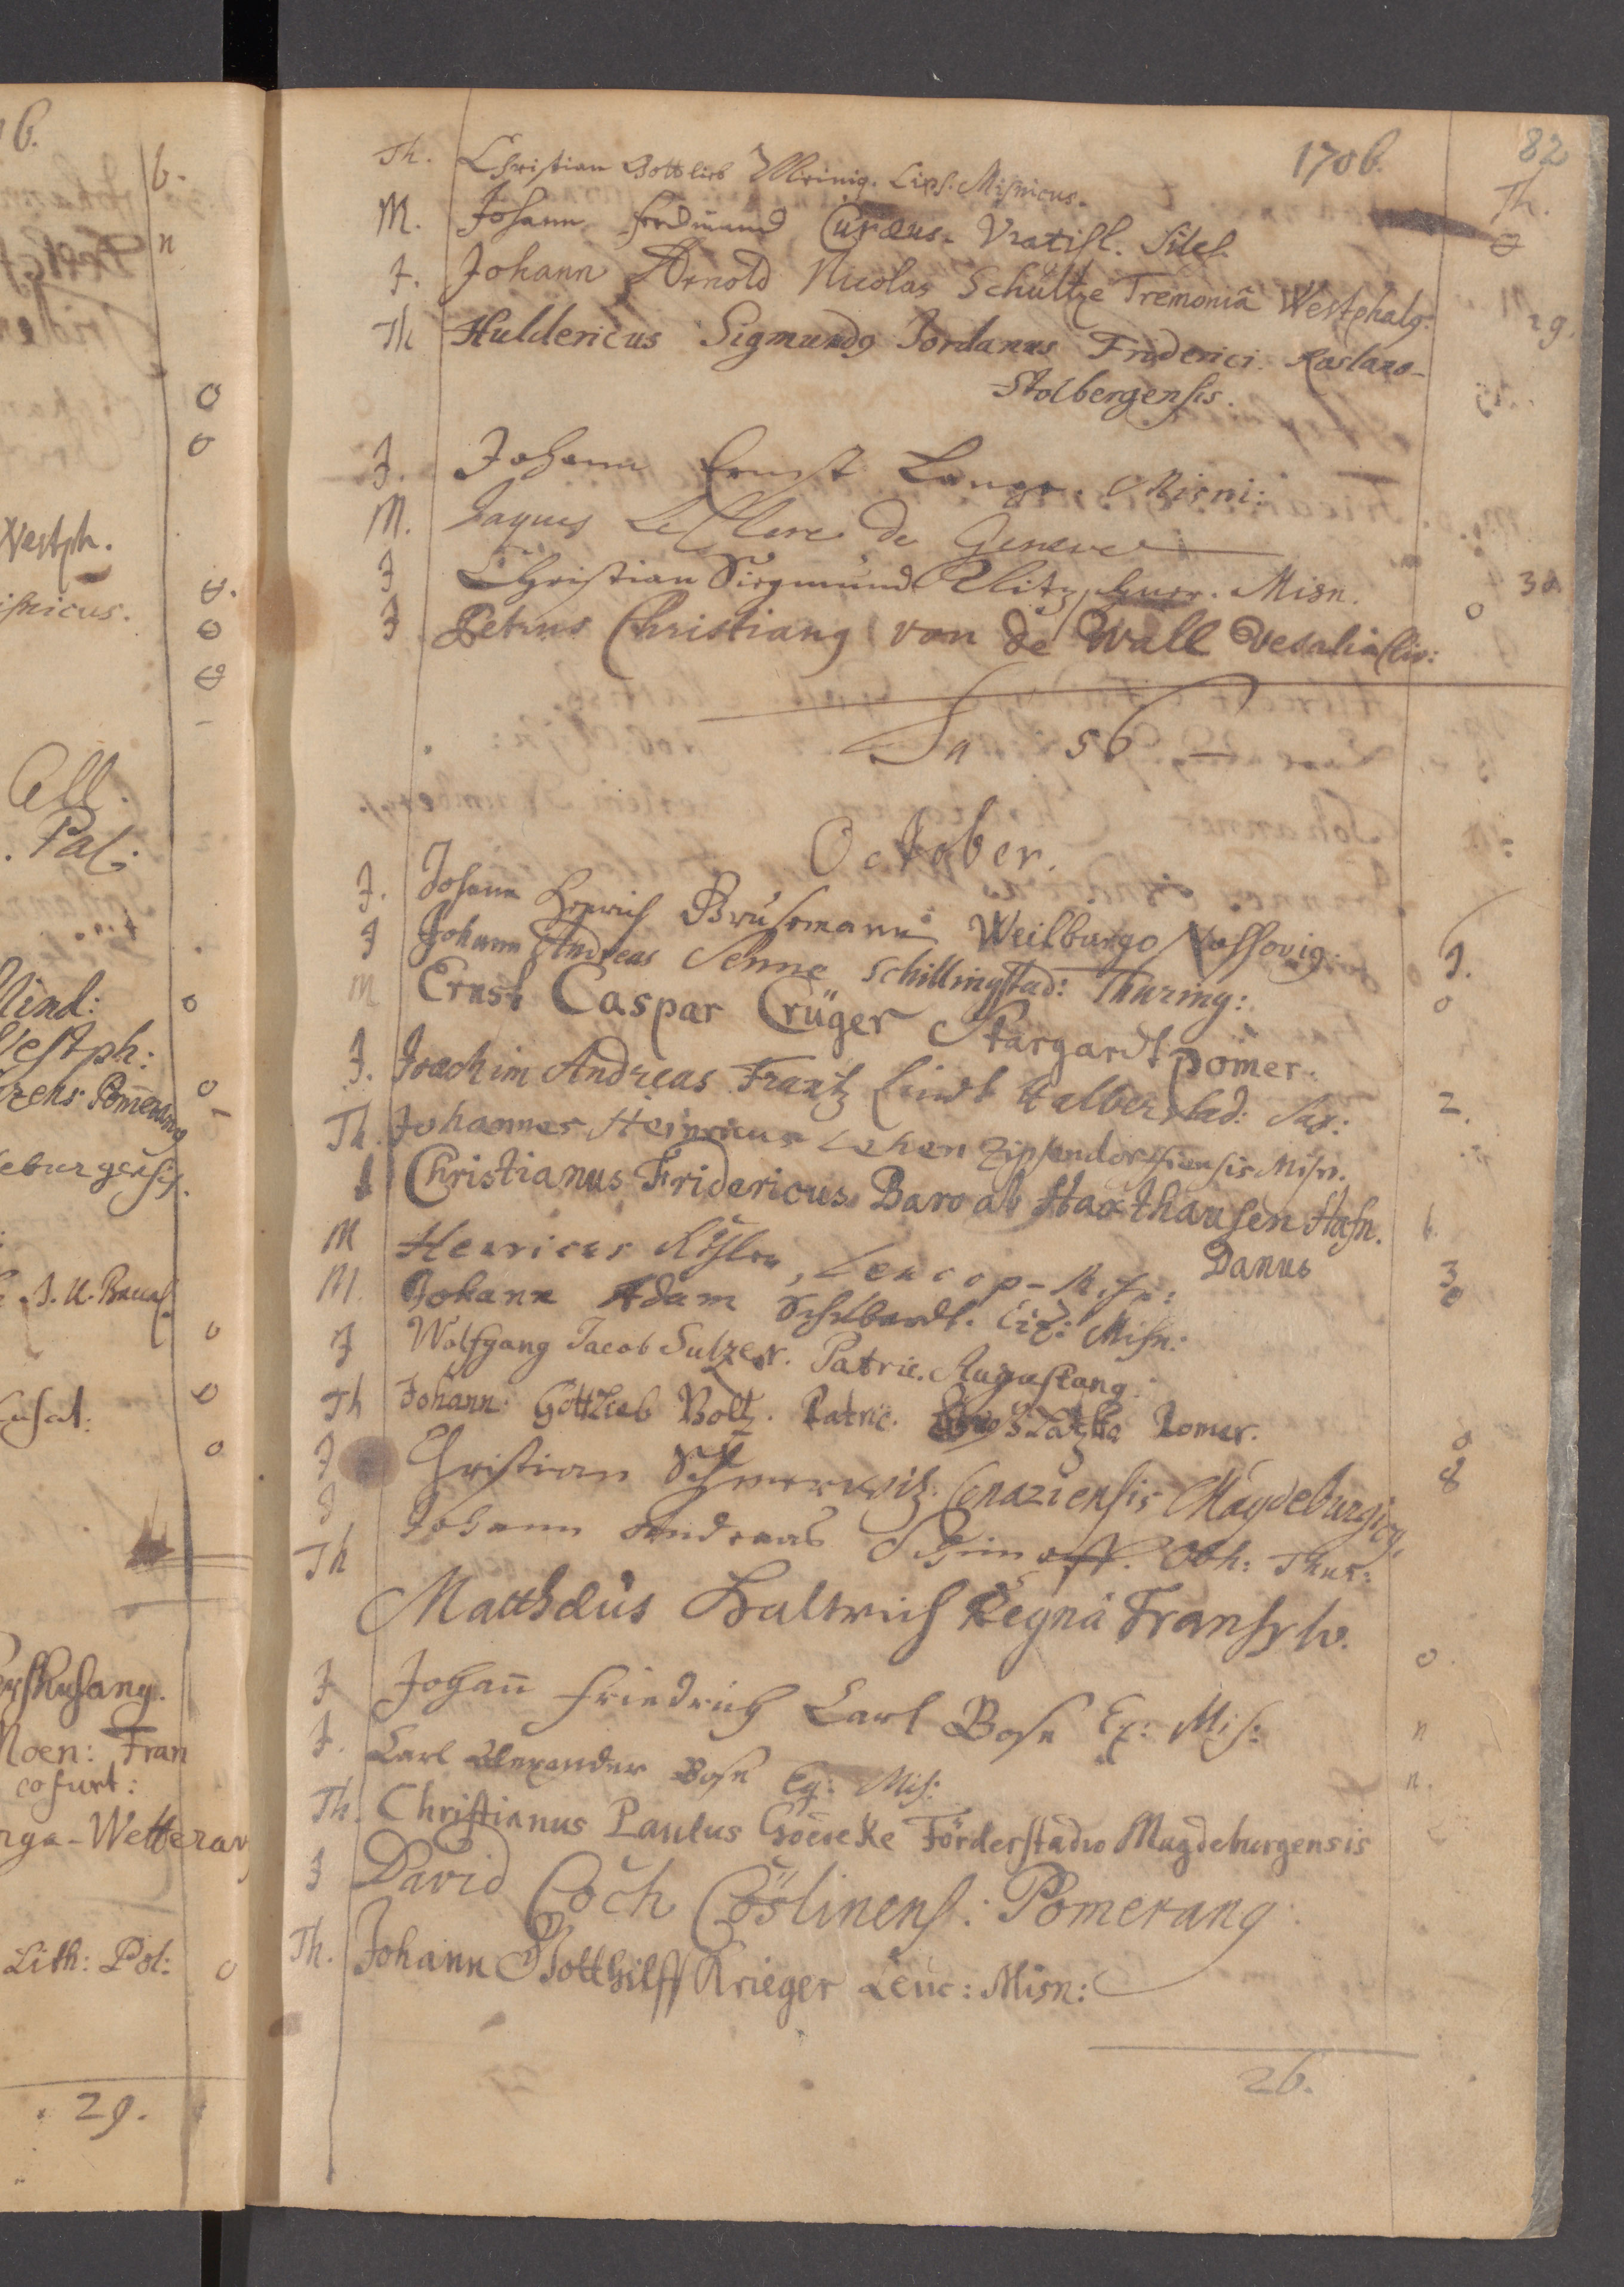 6.
b.
n
o
o
Westph.
isnicus.
o.
o
o
All.
. Pal:
Mind:
o
Westph:
o
eburgensis.
J. U.
o
Lusat:
o
o
Noen: Fran
cofurt:
Wetterav
Lith: Pol:
o
29.
1706.
82
Th. Christian Gottlieb Meinig. Lips. Misnicus.
Th.
M. Johann Ferdinand Curæus. Vratisl. Siles.
o
J. Johann Arnold Nicolas Schultze Tremoniâ Westphalg.
29.
Th Huldericus Sigmundg Jordanus Friderici. Roslano-
Stolbergensis.
J. Johann Ernst Lange. Misni:
M. Jaques Le Clerc de Geneve
J Christian Siegmund Misn.
38
J Petrus Christiang von de Wall Vesaliâ Cliv:
o
Sa 56
October.
J. Johann Henrich Brusemann Weilburgo Nassovig.
J Johann Andreas Senne Schillingstad: Thuring:
J.
M Ernst Caspar Crüger Stargardt Pomer.
o
J. Joachim Andreas Frantz Lindt Halberstad: Sax:
2.
Th. Johannes Heinricus Lehen Zipsendorffiensis Misn.
J Christianus Fridericus Baro ab Haxthausen Hafn.
Danus
6.
M Henricus Leucop-Misn:
3
M. Johann Adam Schubardt. Ciz: Misn:
o
J Wolfgang Jacob Sulzer. Patric. Augustang.
Th Johann Gottlieb Boltz. Patric. Pomer.
o
J Christian Schmerwitz. Magdeburgicg.
8
J Johann Andreas Thur:
Th Matthäus Haltrich Regnâ Transylv.
o.
J Johann Friedrich Carl Bose Eq: Mis:
n
J. Carl Alexander Bose Eq: Mis:
n.
Th. Christianus Paulus Goeteke Förderstadio Magdeburgensis
J David Coch Cöslinens: Pomerang.
Th. Johann Gotthilff Krieger Leuc: Misn:
26.